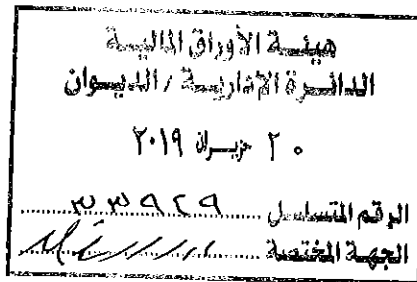 هيئة الأوراق المالية
الدائرة الادارية / الديوان
٢٠ حزيران ٢٠١٩
الرقم المتسلسل ٣٣٩٢٩
الجهة المختصة